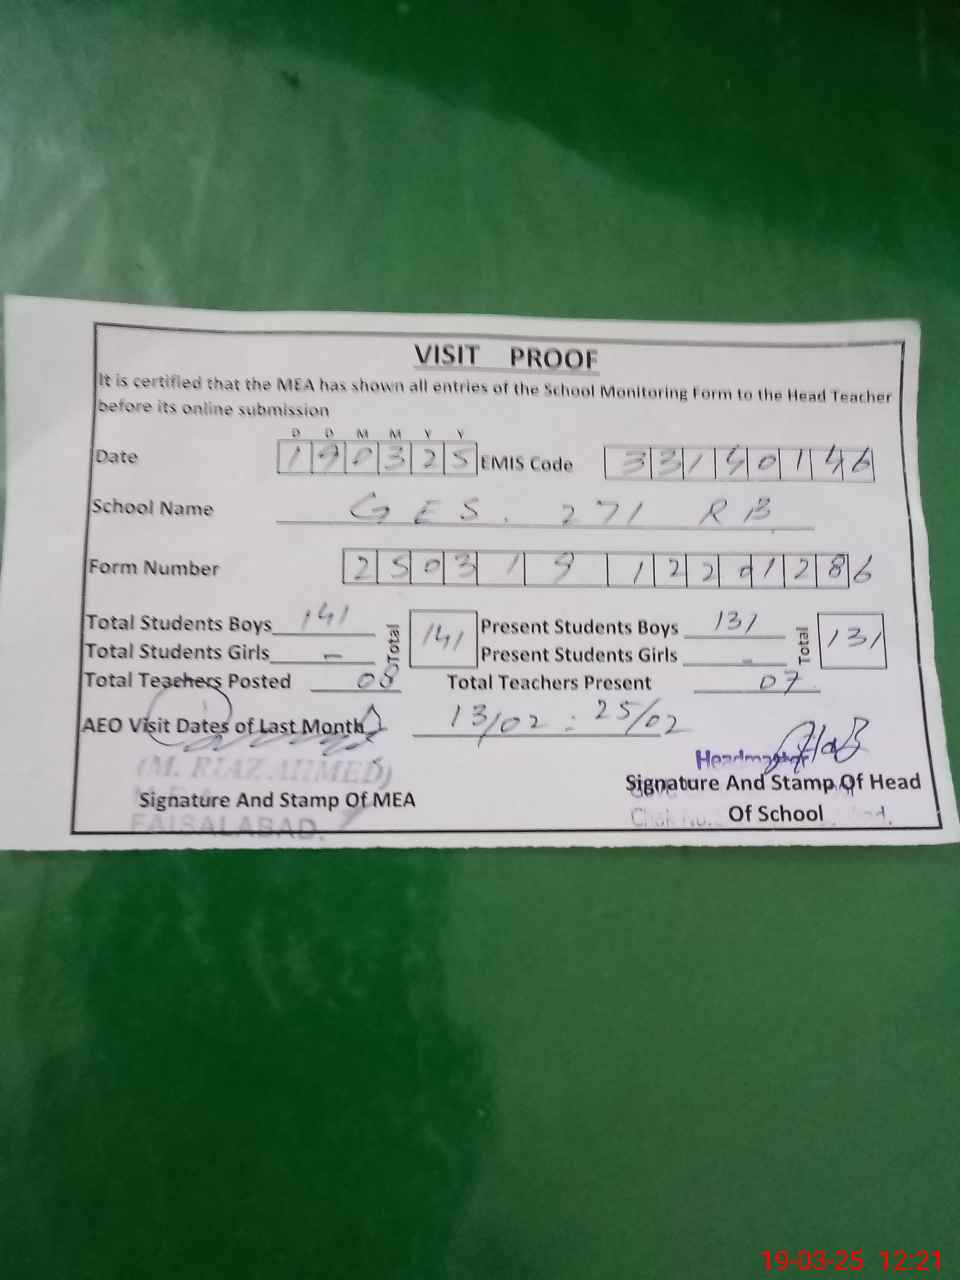 VISIT PROOF
It is certified that the MEA has shown all entries of the School Monitoring Form to the Head Teacher
before its online submission
D D M M Y Y
Date 190325 EMIS Code 33140146
School Name GES. 271 RB
Form Number 25031912201286
Total Students Boys 141 Total 141 Present Students Boys 131 Total 131
Total Students Girls - Present Students Girls -
Total Teachers Posted 08 Total Teachers Present 07
AEO Visit Dates of Last Month 13/02 : 25/02
(M. RIAZ AHMED) Headmaster
Signature And Stamp Of MEA Signature And Stamp Of Head
FAISALABAD. Chak No. Of School
19-03-25 12:21